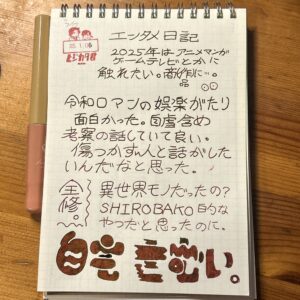 エンタメ日記
2025年はアニメマンガ
ゲームテレビとかに
触れたい。
令和ロマンの娯楽がたり
面白かった。
考察の話していて良い。
傷つかず人と話がした
いんだなと思った。
全修。
異世界モノだったの?
SHIROBAKO的な
やつだと思ったのに。